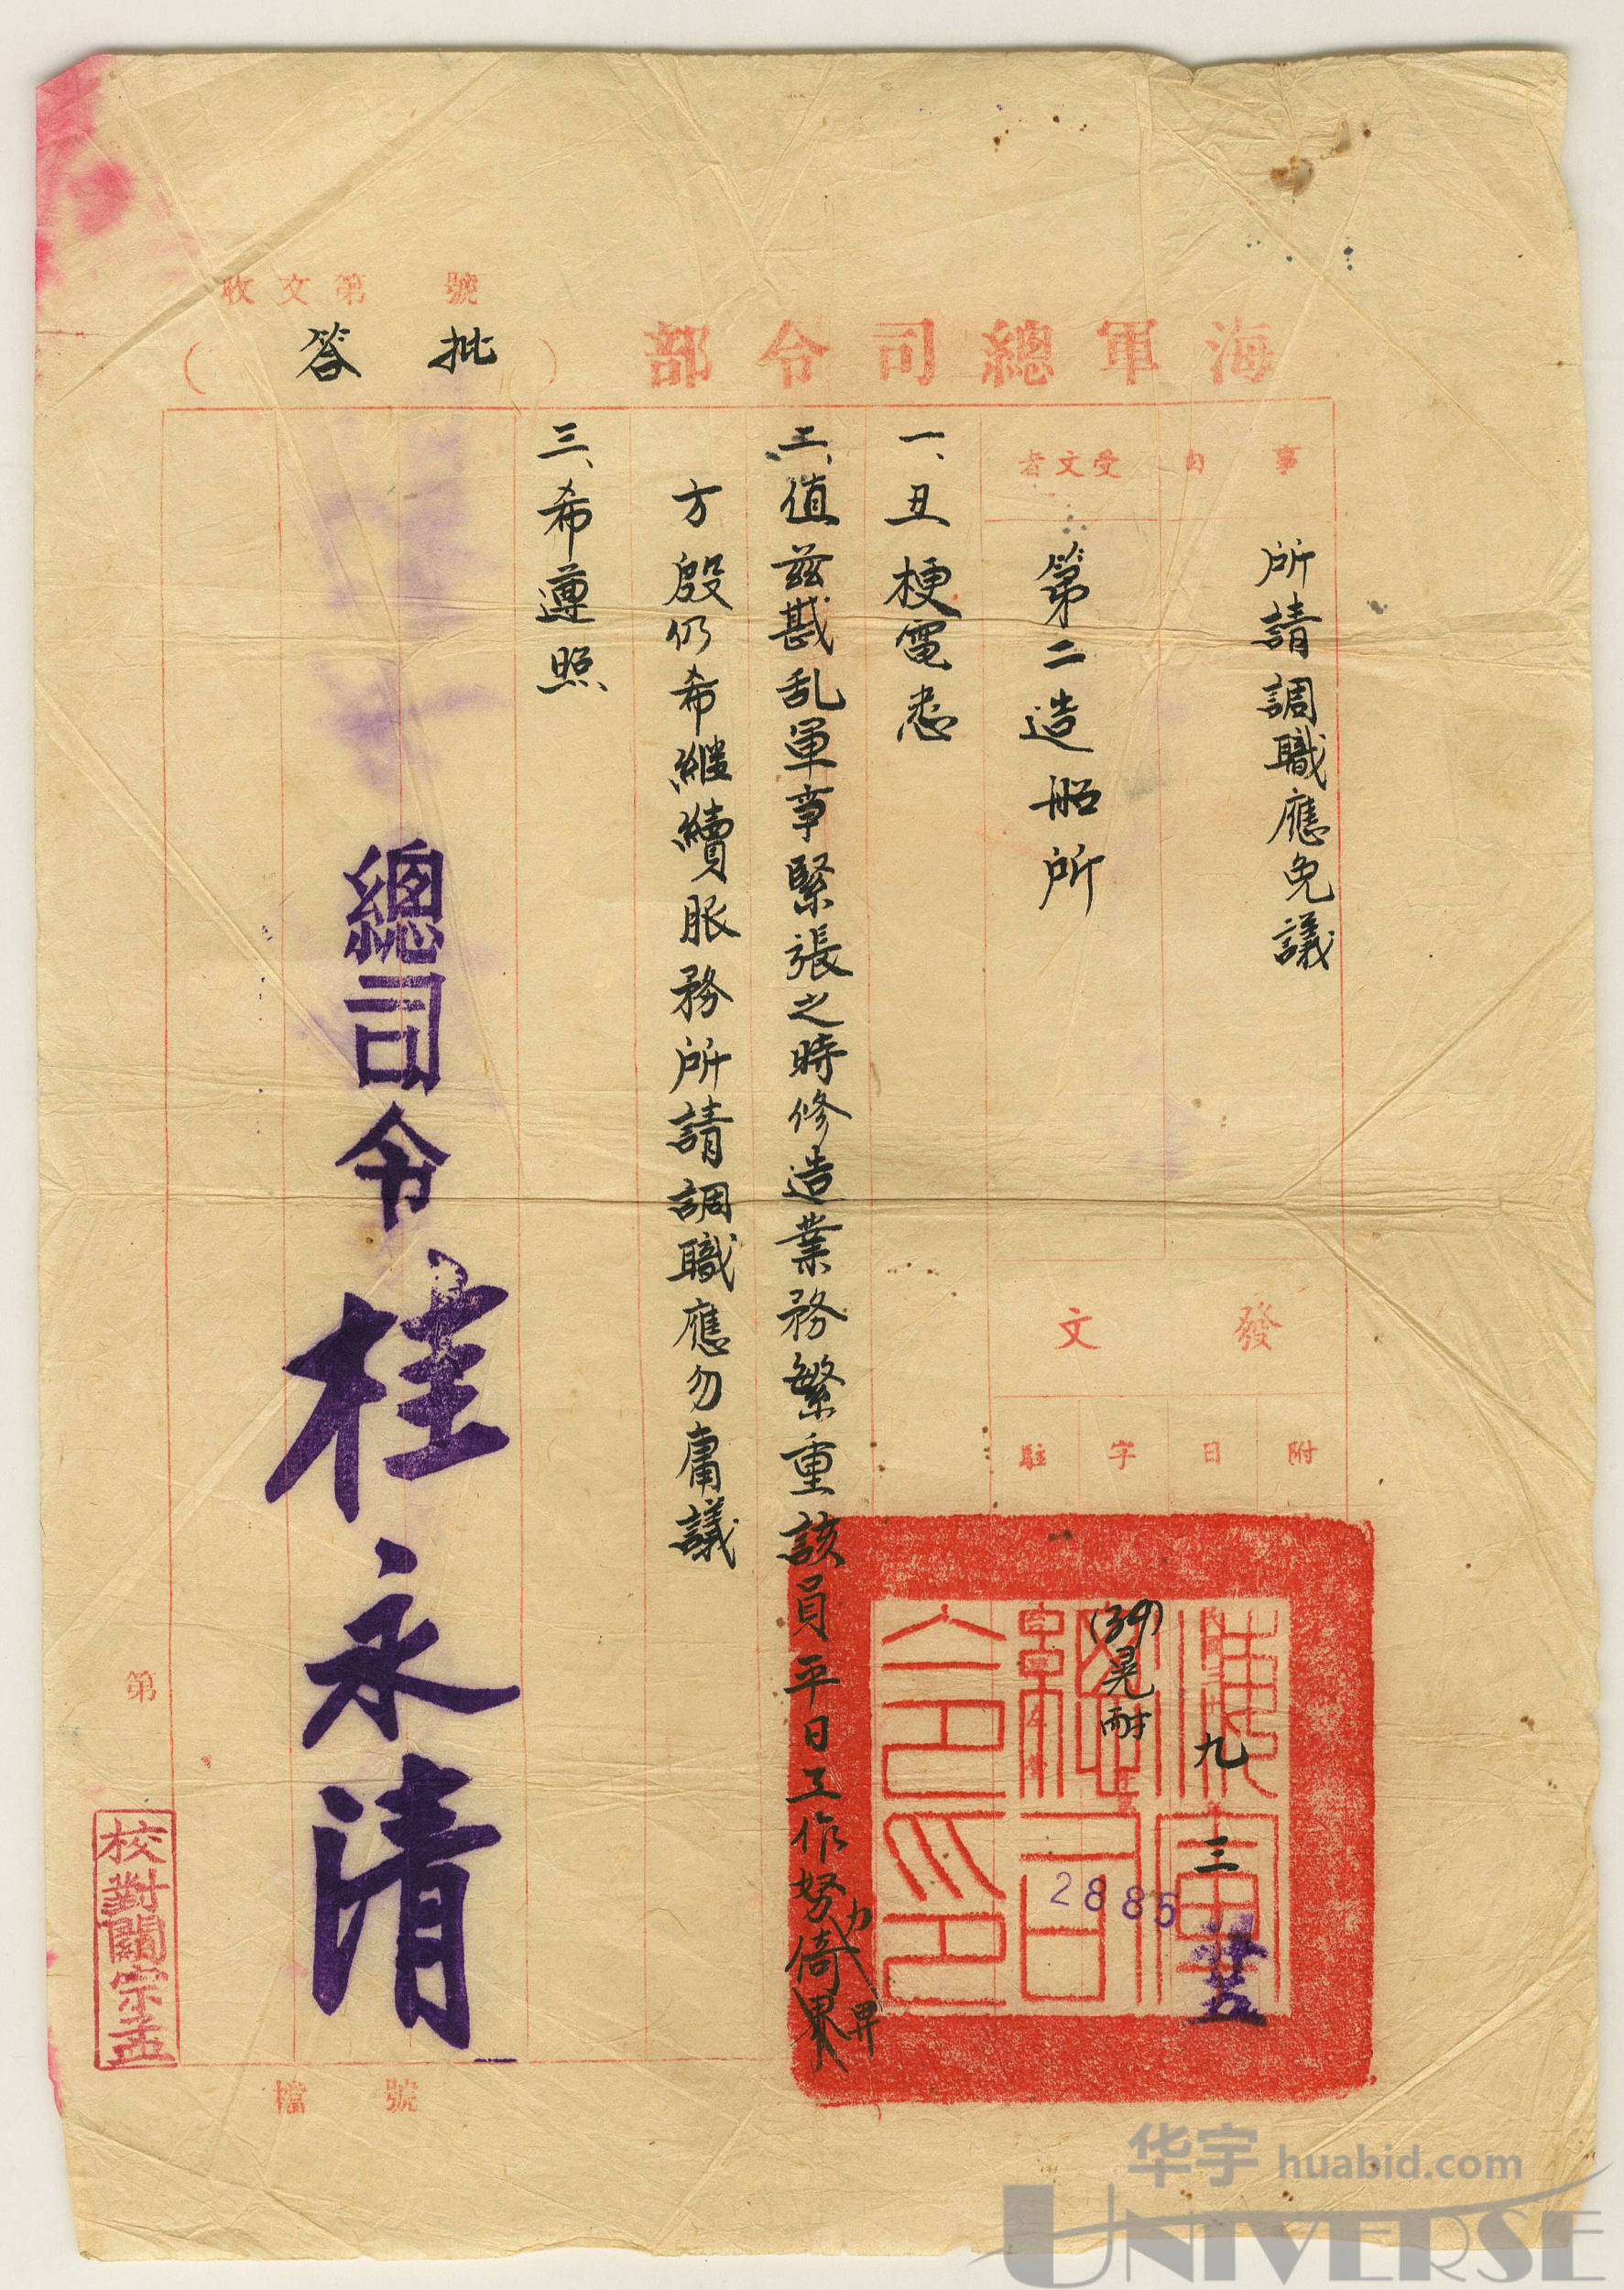 海軍總司令部(批答)
收文第 號
事由
所請調職應免議
受文者
第二造船所
發文
附
日
字
駐
九 三 廿五
(39)晃耐
2885
一、丑梗電悉
二、值兹戡乱軍事緊張之時修造業務繁重該員平日工作努力倚畀
方殷仍希継續服務所請調職應勿庸議
三、希遵照
總司令桂永清
第
檔號
校對關宗孟
海軍總司令印
华宇 huabid.com
UNIVERSE